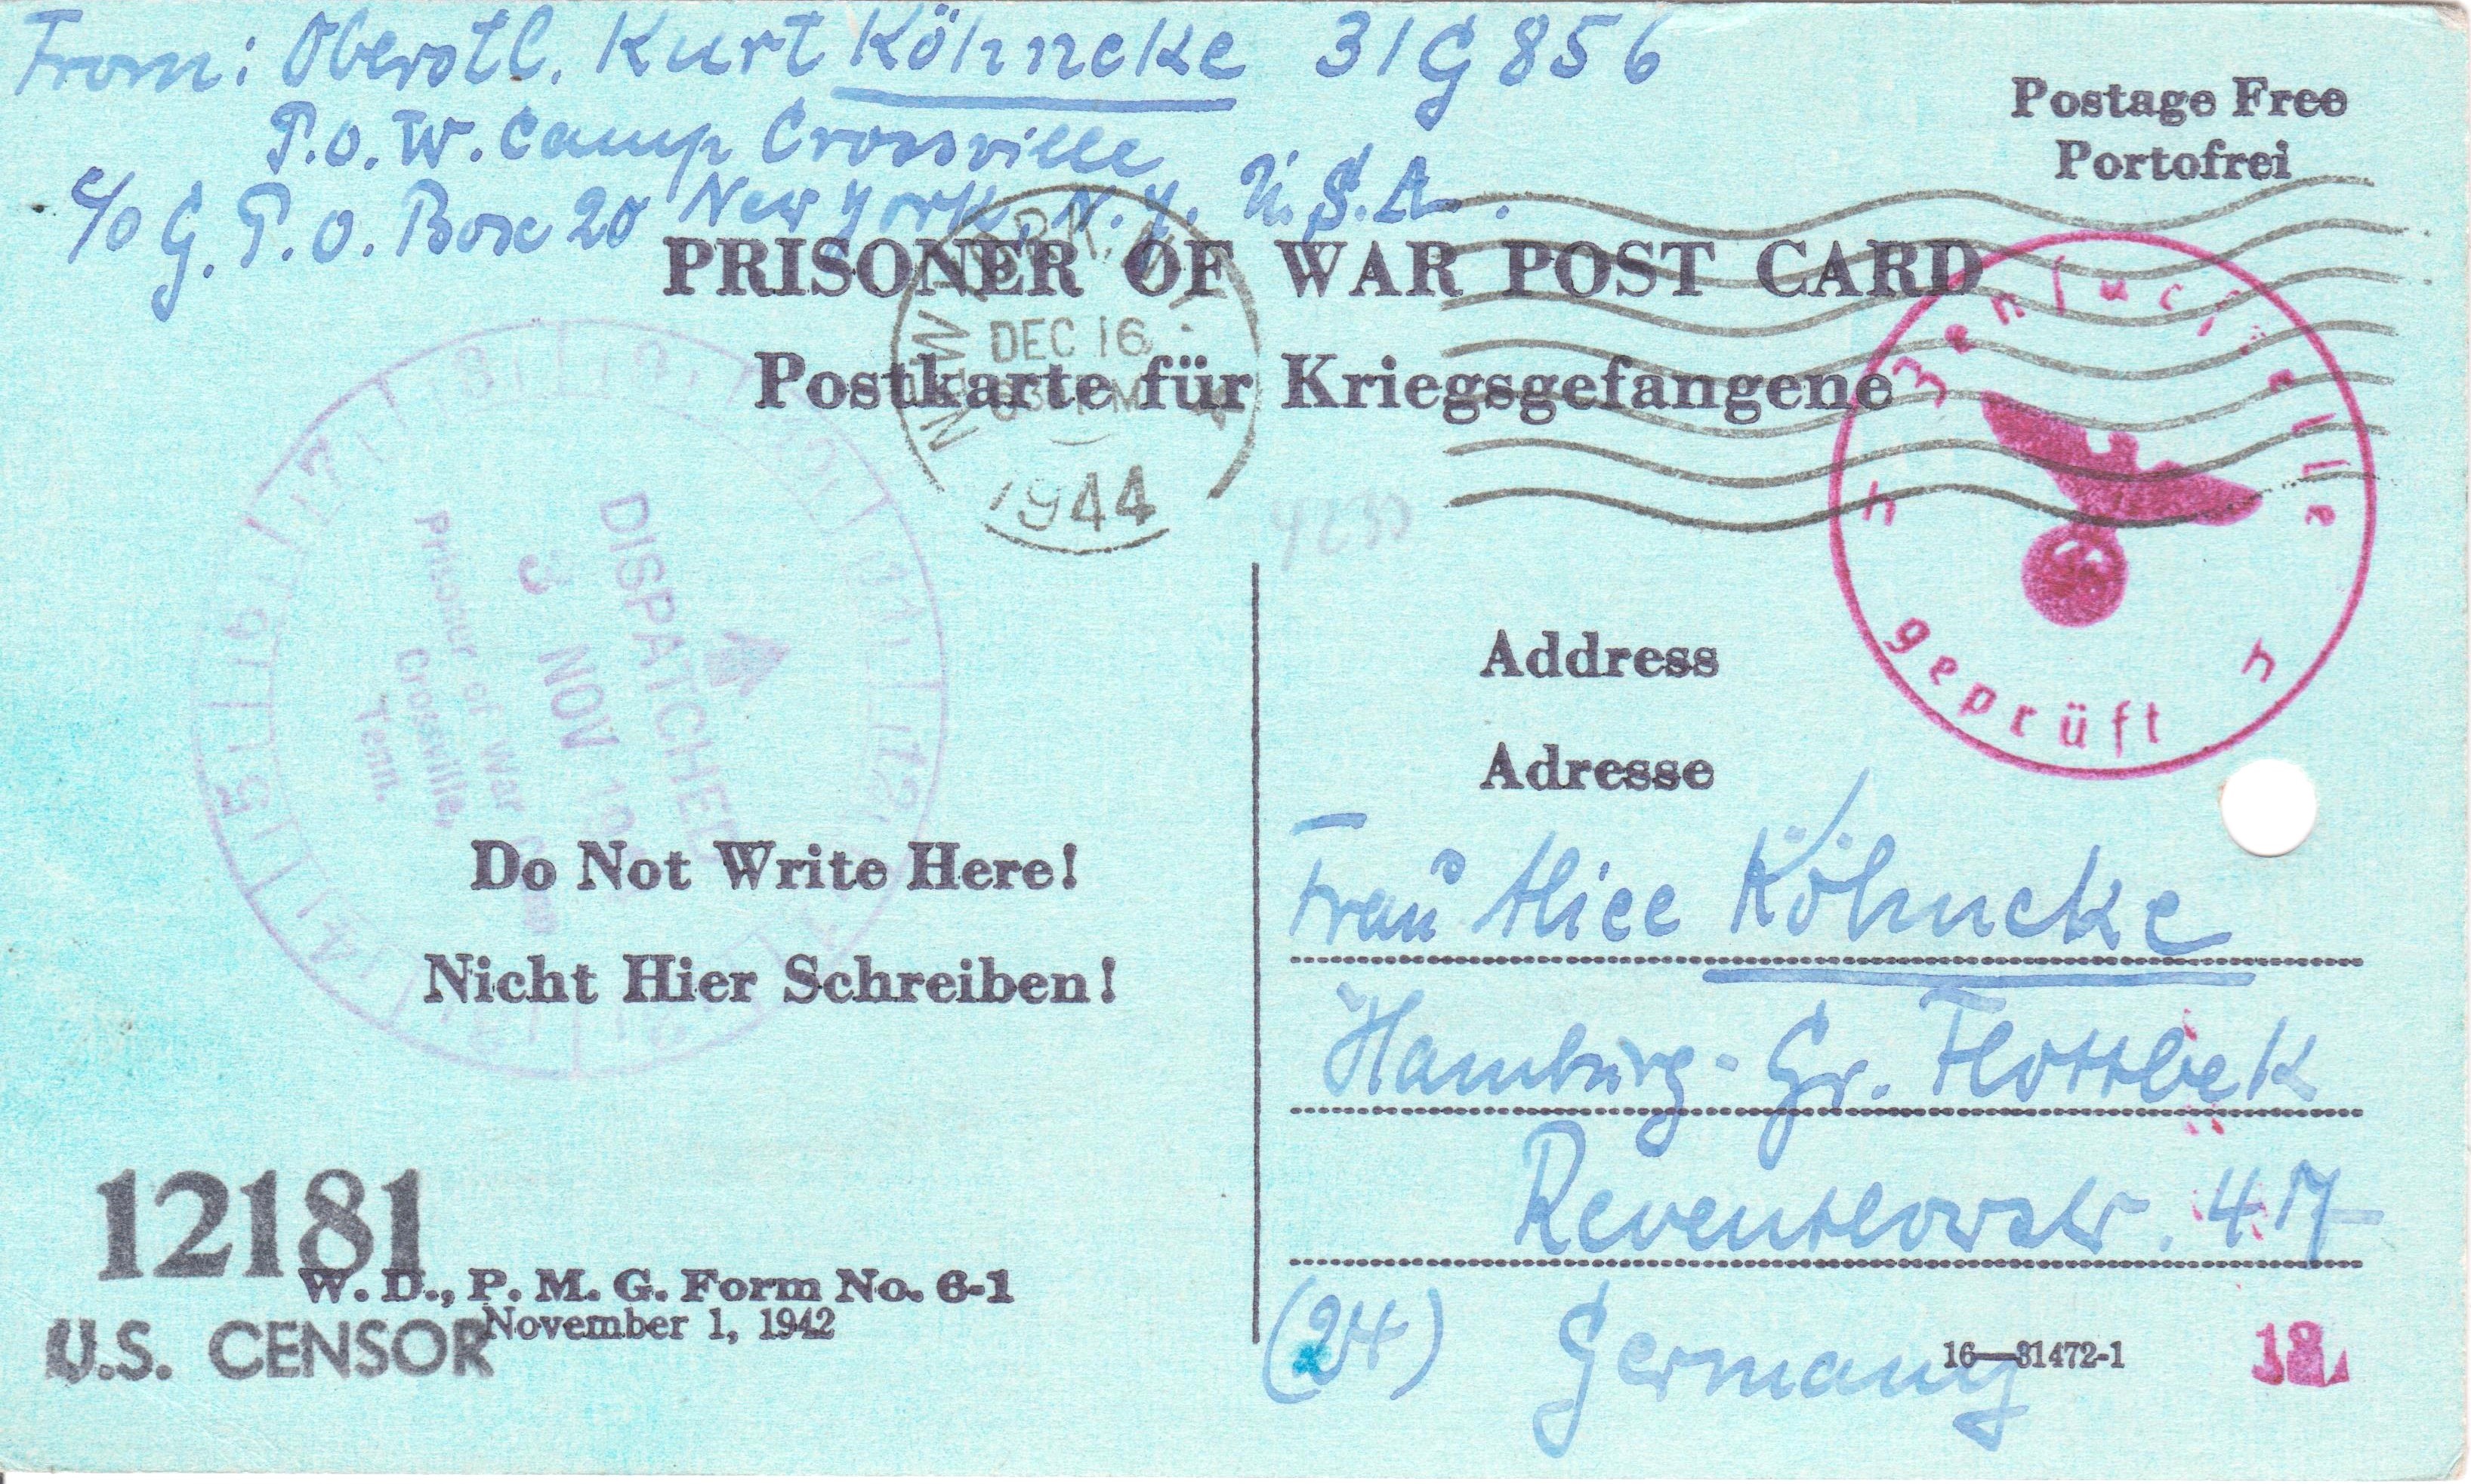 From: Oberstl. Kurt Köhncke 31G 856
P.O.W. Camp Crossville
c/o G.P.O. Box 20 New York, N.Y. U.S.A.
Postage Free
Portofrei
PRISONER OF WAR POST CARD
Postkarte für Kriegsgefangene
NEW YORK, N.Y.
DEC 16
1944
4230
DISPATCHED
3 NOV 19
Prisoner of War Camp
Crossville,
Tenn.
7 8 9 10 11 12
14 15 16
Zensurstelle
h h
geprüft
Address
Adresse
Do Not Write Here!
Nicht Hier Schreiben!
Frau Alice Köhncke
Hamburg-Gr. Flottbek
Reventlowstr.
(24) Germany
12181
U.S. CENSOR
W. D., P. M. G. Form No. 6-1
November 1, 1942
16—31472-1
18